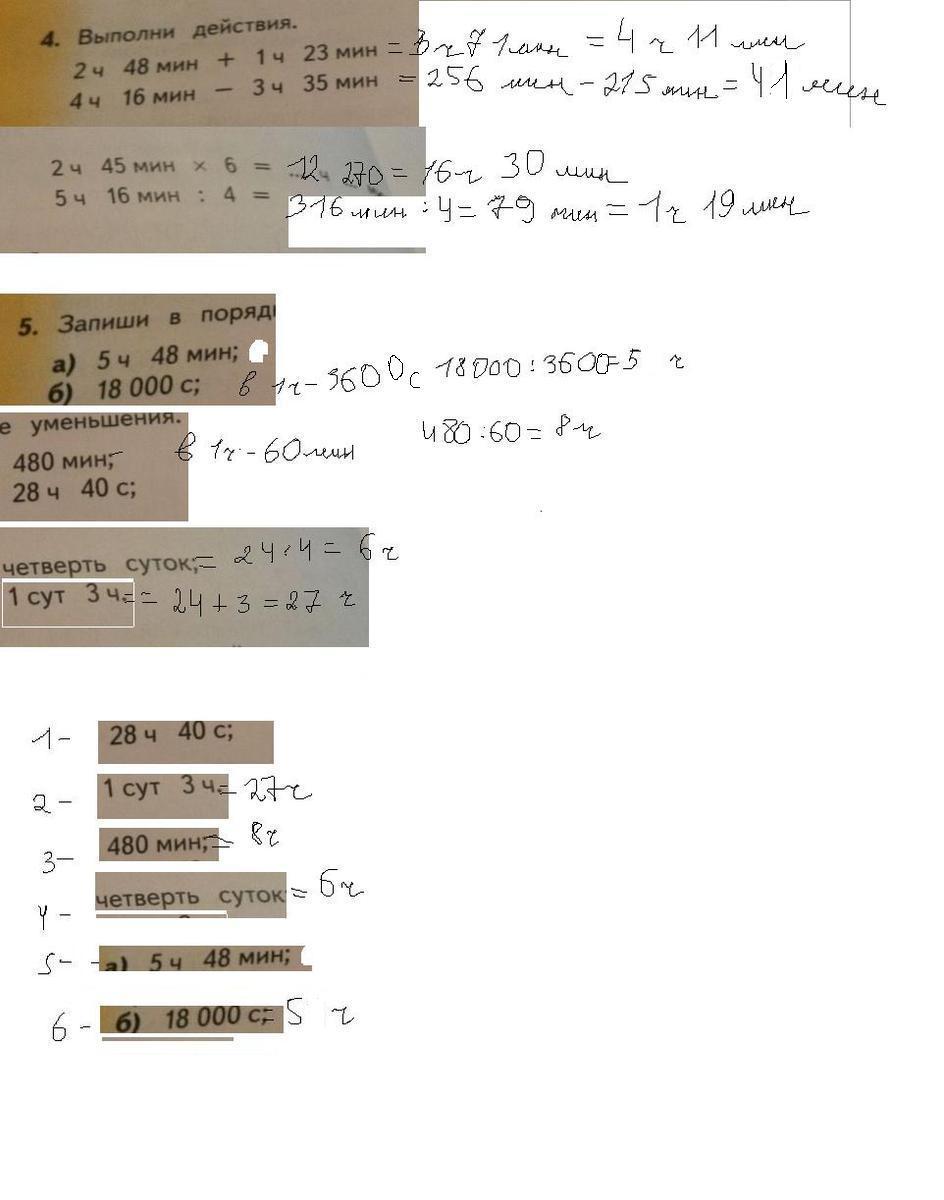 4. Выполни действия.
2 ч 48 мин + 1 ч 23 мин = 3 ч 71 мин = 4 ч 11 мин
4 ч 16 мин − 3 ч 35 мин = 256 мин − 215 мин = 41 мин
2 ч 45 мин × 6 = 12ч 270 = 16 ч 30 мин
5 ч 16 мин : 4 = 316 мин : 4 = 79 мин = 1 ч 19 мин
5. Запиши в поряд
а) 5 ч 48 мин;
б) 18 000 с; в 1ч - 3600 с 18000 : 3600=5 ч
е уменьшения.
480 мин; в 1ч - 60 мин 480 : 60 = 8ч
28 ч 40 с;
четверть суток; = 24 : 4 = 6 ч
1 сут 3 ч. = = 24 + 3 = 27 ч
1 - 28 ч 40 с;
2 - 1 сут 3 ч. = 27ч
3 - 480 мин; = 8ч
4 - четверть суток = 6ч
5 - - а) 5 ч 48 мин;
6 - б) 18 000 с; = 5 ч